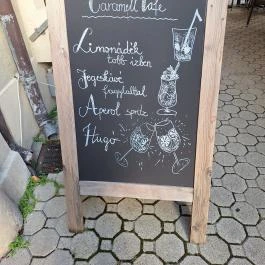 Caramell Cafe
Limonádék
több ízben
Jegeskávé
fagylalttal
Aperol spritz
Hugo